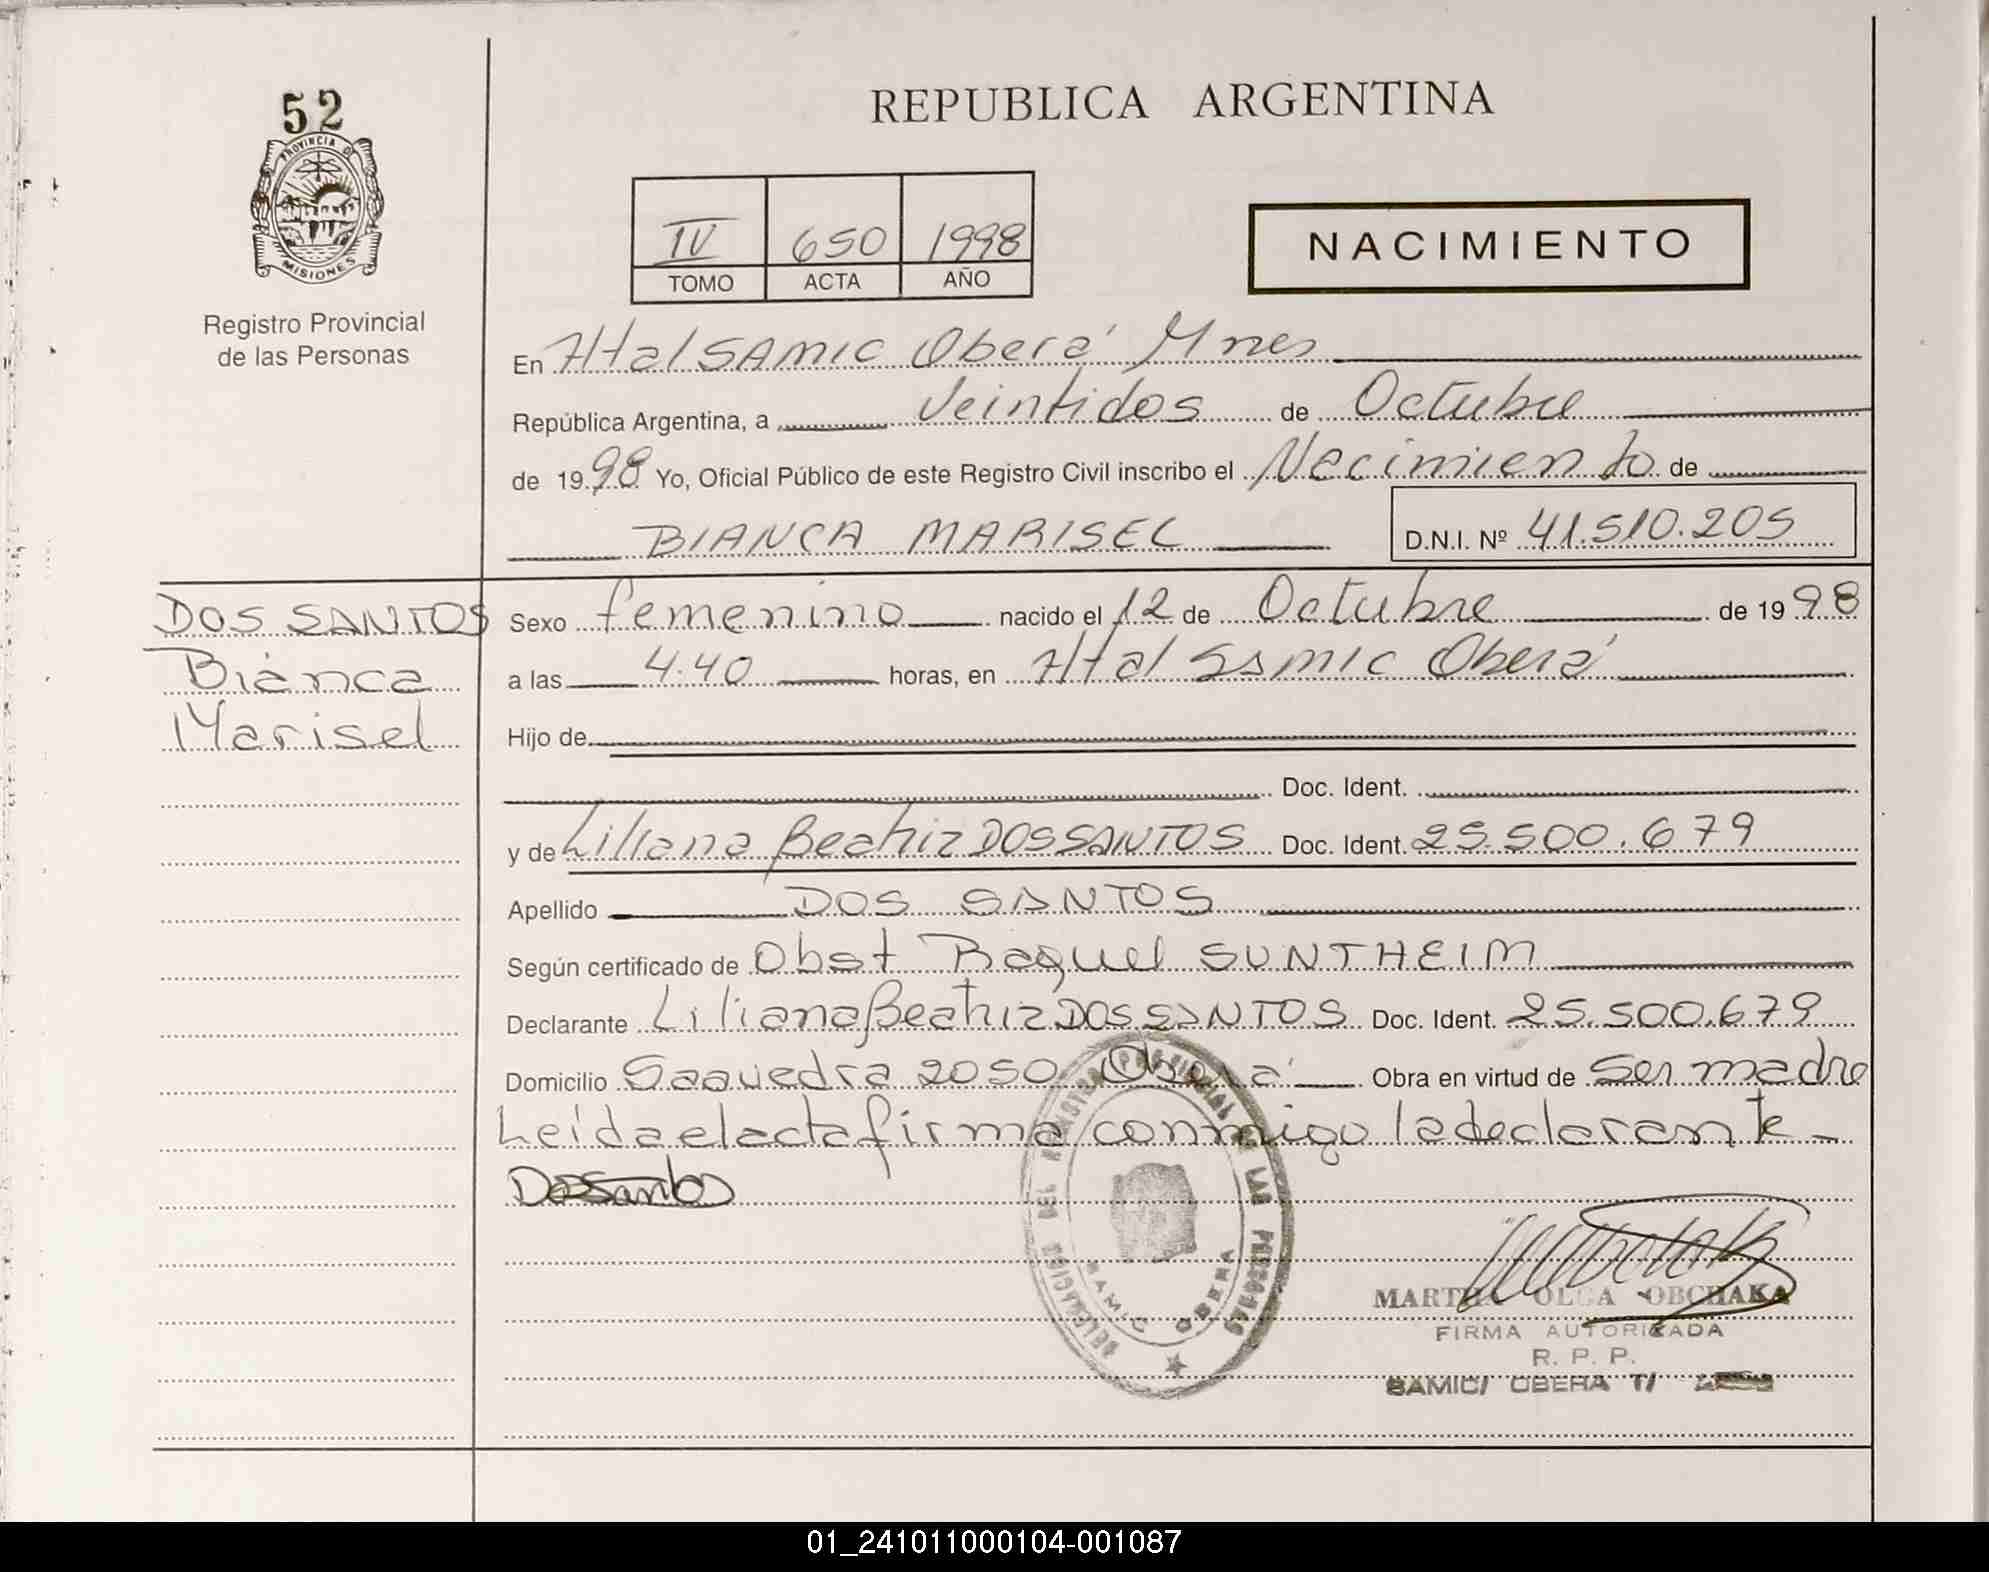 52
REPUBLICA ARGENTINA
PROVINCIA D MISIONES
Registro Provincial
de las Personas
IV 650 1998
TOMO ACTA AÑO
NACIMIENTO
En Htal SAMIC Oberá Mnes
República Argentina, a Veintidos de Octubre
de 1998 Yo, Oficial Público de este Registro Civil inscribo el Nacimiento de
BIANCA MARISEL D.N.I. Nº 41.510.205
DOS SANTOS
Bianca
Marisel
Sexo femenino nacido el 12 de Octubre de 1998
a las 4.40 horas, en Htal Samic Oberá
Hijo de
Doc. Ident.
y de Liliana Beatriz DOS SANTOS Doc. Ident. 25.500.679
Apellido DOS SANTOS
Según certificado de Obst Raquel SUNTHEIM
Declarante Liliana Beatriz DOS SANTOS Doc. Ident. 25.500.679
Domicilio Saavedra 2050 Oberá Obra en virtud de ser madre
Leída el acta firma conmigo la declarante
Dos Santos
DELEGACION DEL REGISTRO PROVINCIAL DE LAS PERSONAS
SAMIC OBERA
MARTHA OLGA OBCHAKA
FIRMA AUTORIZADA
R. P. P.
SAMIC/ OBERA T/
01_241011000104-001087